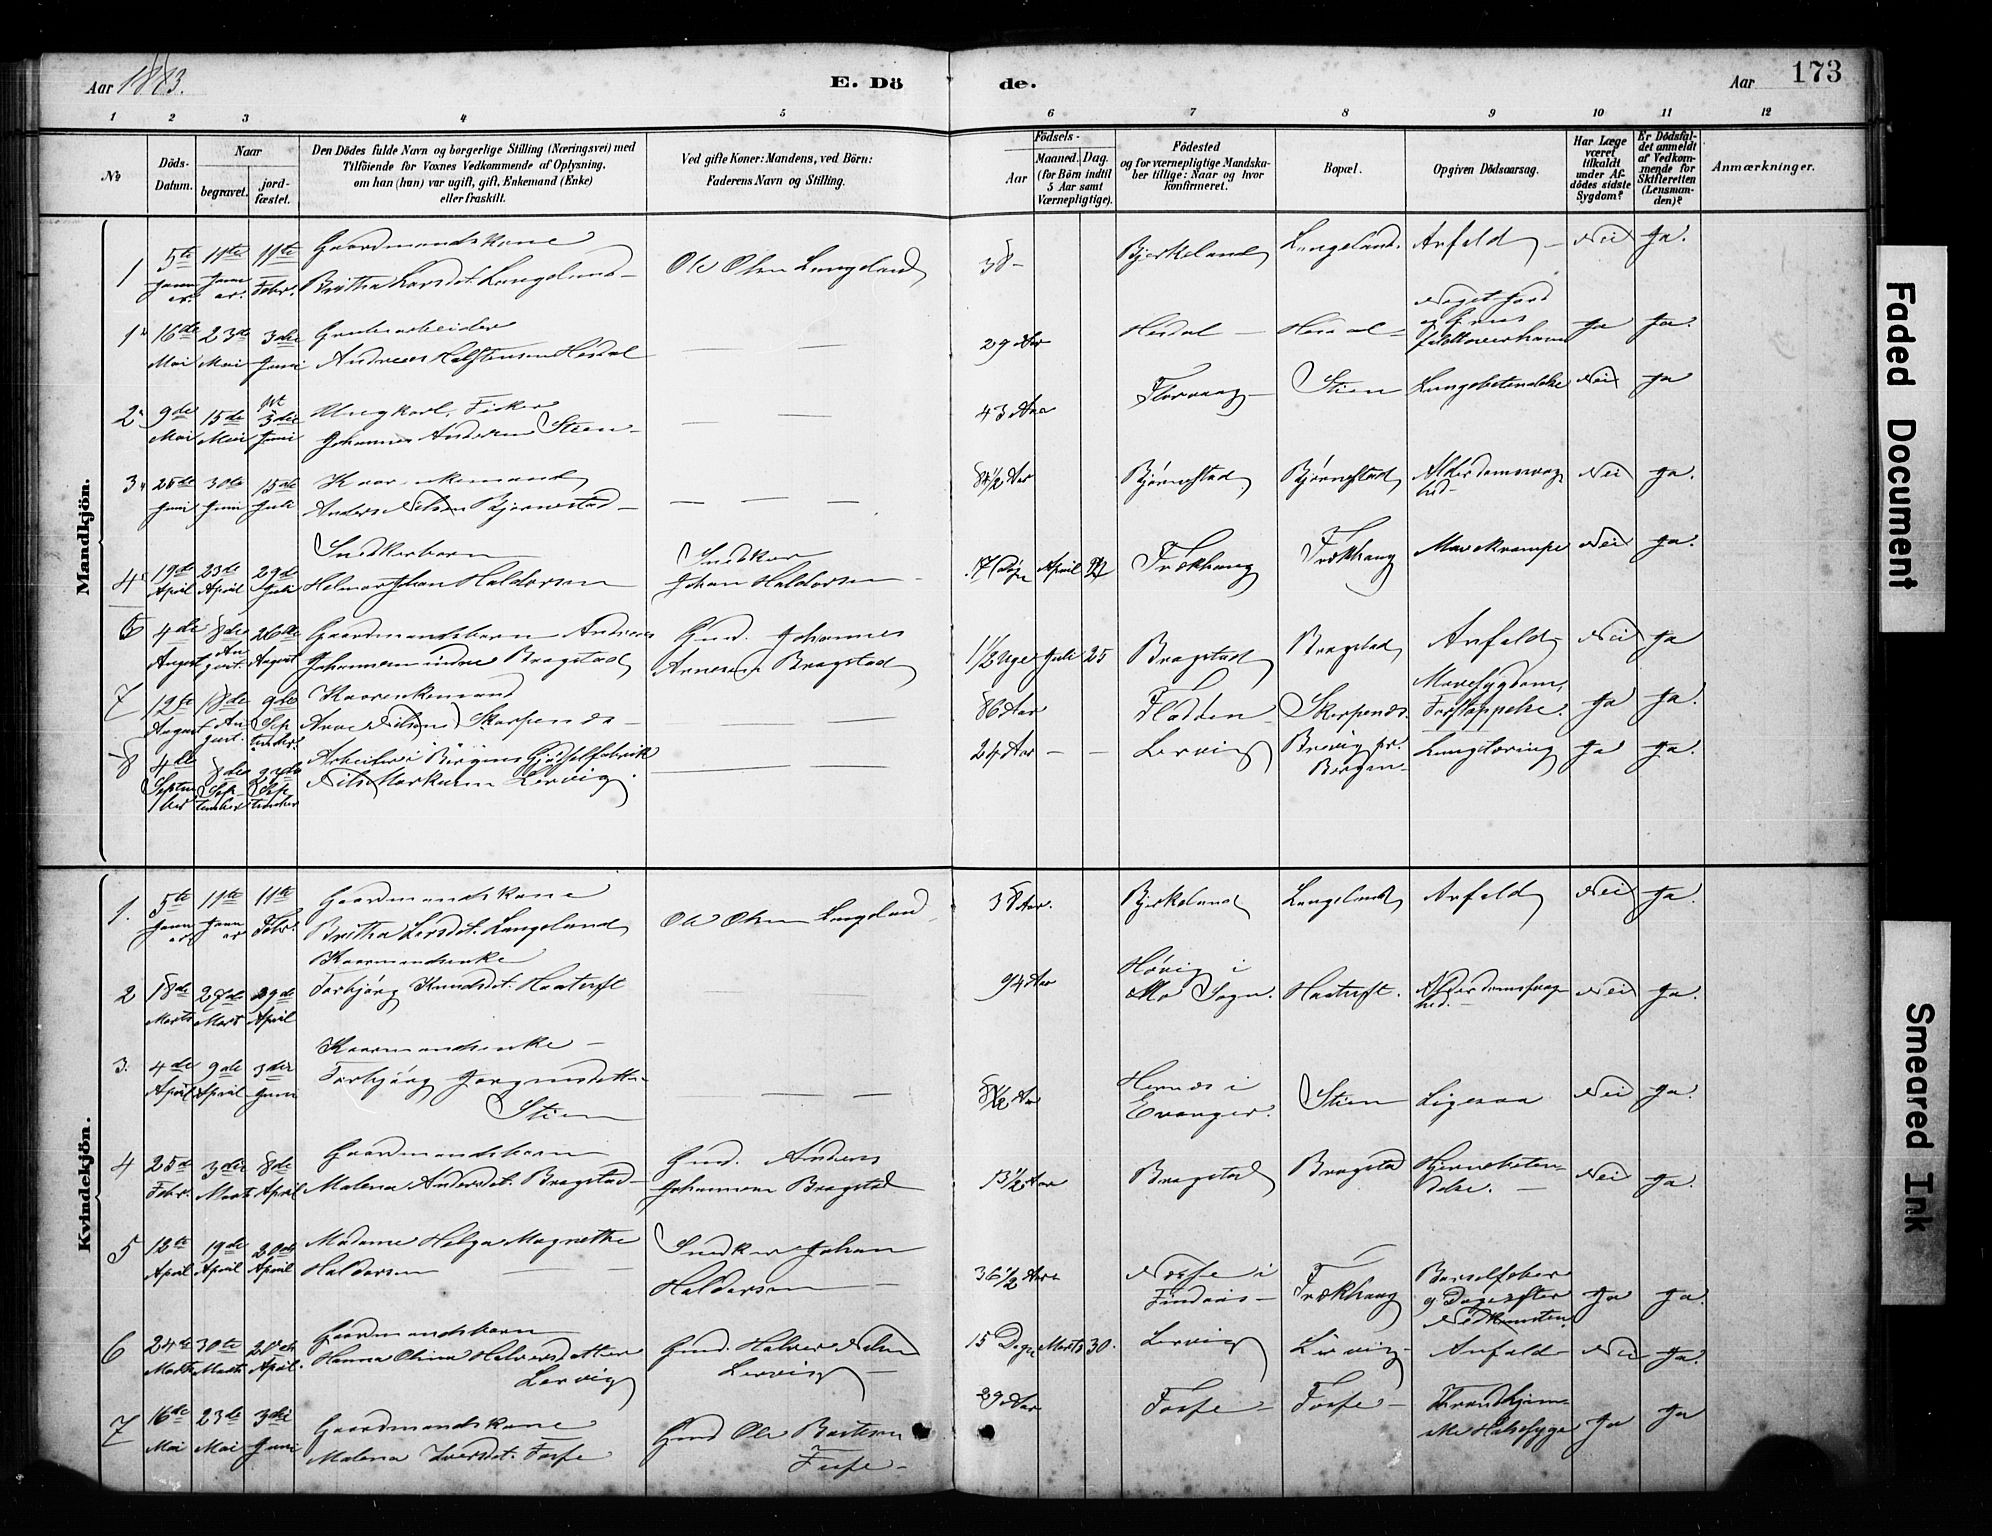 Aar 1883.
E. Döde.
Aar
173
1 2 3 4 5 6 7 8 9 10 11 12
No
Döds-Datum.
Naar
begravet.
jord-fæstet.
Den Dödes fulde Navn og borgerlige Stilling (Næringsvei) med
Tilföiende for Voxnes Vedkommende af Oplysning,
om han (hun) var ugift, gift, Enkemand (Enke)
eller fraskilt.
Ved gifte Koner: Mandens, ved Börn:
Faderens Navn og Stilling.
Födsels-
Aar
Maaned. Dag.
(for Börn indtil
5 Aar samt
Værnepligtige).
Födested
og for værnepligtige Mandska-
ber tillige: Naar og hvor
konfirmeret.
Bopæl.
Opgiven Dödsaarsag.
Har Læge
været
tilkaldt
under Af-
dödes sidste
Sygdom?
Er Dödsfal-
det anmeldt
af Vedkom-
mende for
Skifteretten
(Lensman-
den)?
Anmærkninger.
Mandkjön.
1 5te Januar 11te Januar 11te Febr. Gaardmandskone
Britha Larsdt. Langeland Ole Olsen Langeland 38 Bjerkeland Langeland. Anfald Nei Ja.
1 16de Mai 23de Mai 3die Juni Grubearbeider
Andreas Halstensen Hesdal 29 Aar Hesdal Hesdal Ja Ja.
2 9de Mai 15de Mai 3die Juni Ungkarl, Fisker
Johannes Andersen Stien 43 Aar Florvaag Stien Lungebetændelse Nei Ja
3 25de Juni 30te Juni 15de Juli Kaarenkemand
Anders Nilsen Bjørnestad 84 1/2 Aar Bjørnestad Bjørnestad Alderdomssvaghed Nei Ja.
4 19de April 23de April 29de Juli Snedkerbarn
Helmer Johan Haldorsen Snedker
Johan Haldorsen April Trækhaug Trækhaug Mavekrampe Nei Ja.
6 4de August 8de August 26de August Gaardmandsbarn Andreas
Johannessen indre Bragstad Gmd. Johannes
Arnesen Bragstad 1 1/2 Uge Juli 25 Bragstad Bragstad Anfald Nei Ja
7 12te August 18de August 9de September Kaarenkemand
Arne Nilsen Skorpenæs 86 Aar Fladden Skorpenæs. Mavesygdom,
Forstoppelse. Ja Ja.
8 4de September 8de September September Arbeider i Bergens Gjødselfabrik
Nils Markusen Lervig. 24 Aar Lervig Brevig pr.
Bergen Lungetæring Ja Ja.
Kvindekjön.
1. 5te Januar 11te Januar 11te Febr. Gaardmandskone
Britha Larsdt. Langeland Ole Olsen Langeland 38 Aar. Bjerkeland Langeland Anfald Nei Ja.
2 18de Marts Marts 29de April Kaarmandsenke
Torbjørg Knudsdt. Haatuft 94 Aar Høvig i
Mo Sogn. Haatuft. Alderdomssvaghed. Nei Ja.
3. 4de April 9de April 3die Juni Kaarmandsenke
Torbjørg Jørgensdatter
Stien Aar Hernæs i
Evanger. Stien Ligesaa Nei Ja.
4 25de Febr. 3die Marts 8de April Gaardmandsbarn
Malena Andersdt. Bragstad Gmd. Anders
Johannessen Bragstad 13 1/2 Aar Bragstad Bragstad Hjernebetændelse. Nei Ja.
5 12te April 19de April 20de April Madame Helga Magrethe
Haldorsen Snedker Johan
Haldorsen 36 1/2 Aar Nørfe i
Findaas Trækhaug Barselfeber
9 Dage efter
Nedkomsten Ja Ja.
6 24de Marts 30te Marts 20de April. Gaardmandsbarn
Hanna Olina Halversdatter
Lervig Gmd. Halver Nilsen
Lervig 15 Døgn Marts 30. Lervig Lervig Anfald Nei Ja.
7 16de Mai 23de Mai 3die Juni Gaardmandskone
Malena Iversdt. Fosse Gmd Ole Bastesen
Fosse 29 Aar Fosse Fosse Halssyge Ja Ja
Faded Document
Smeared Ink